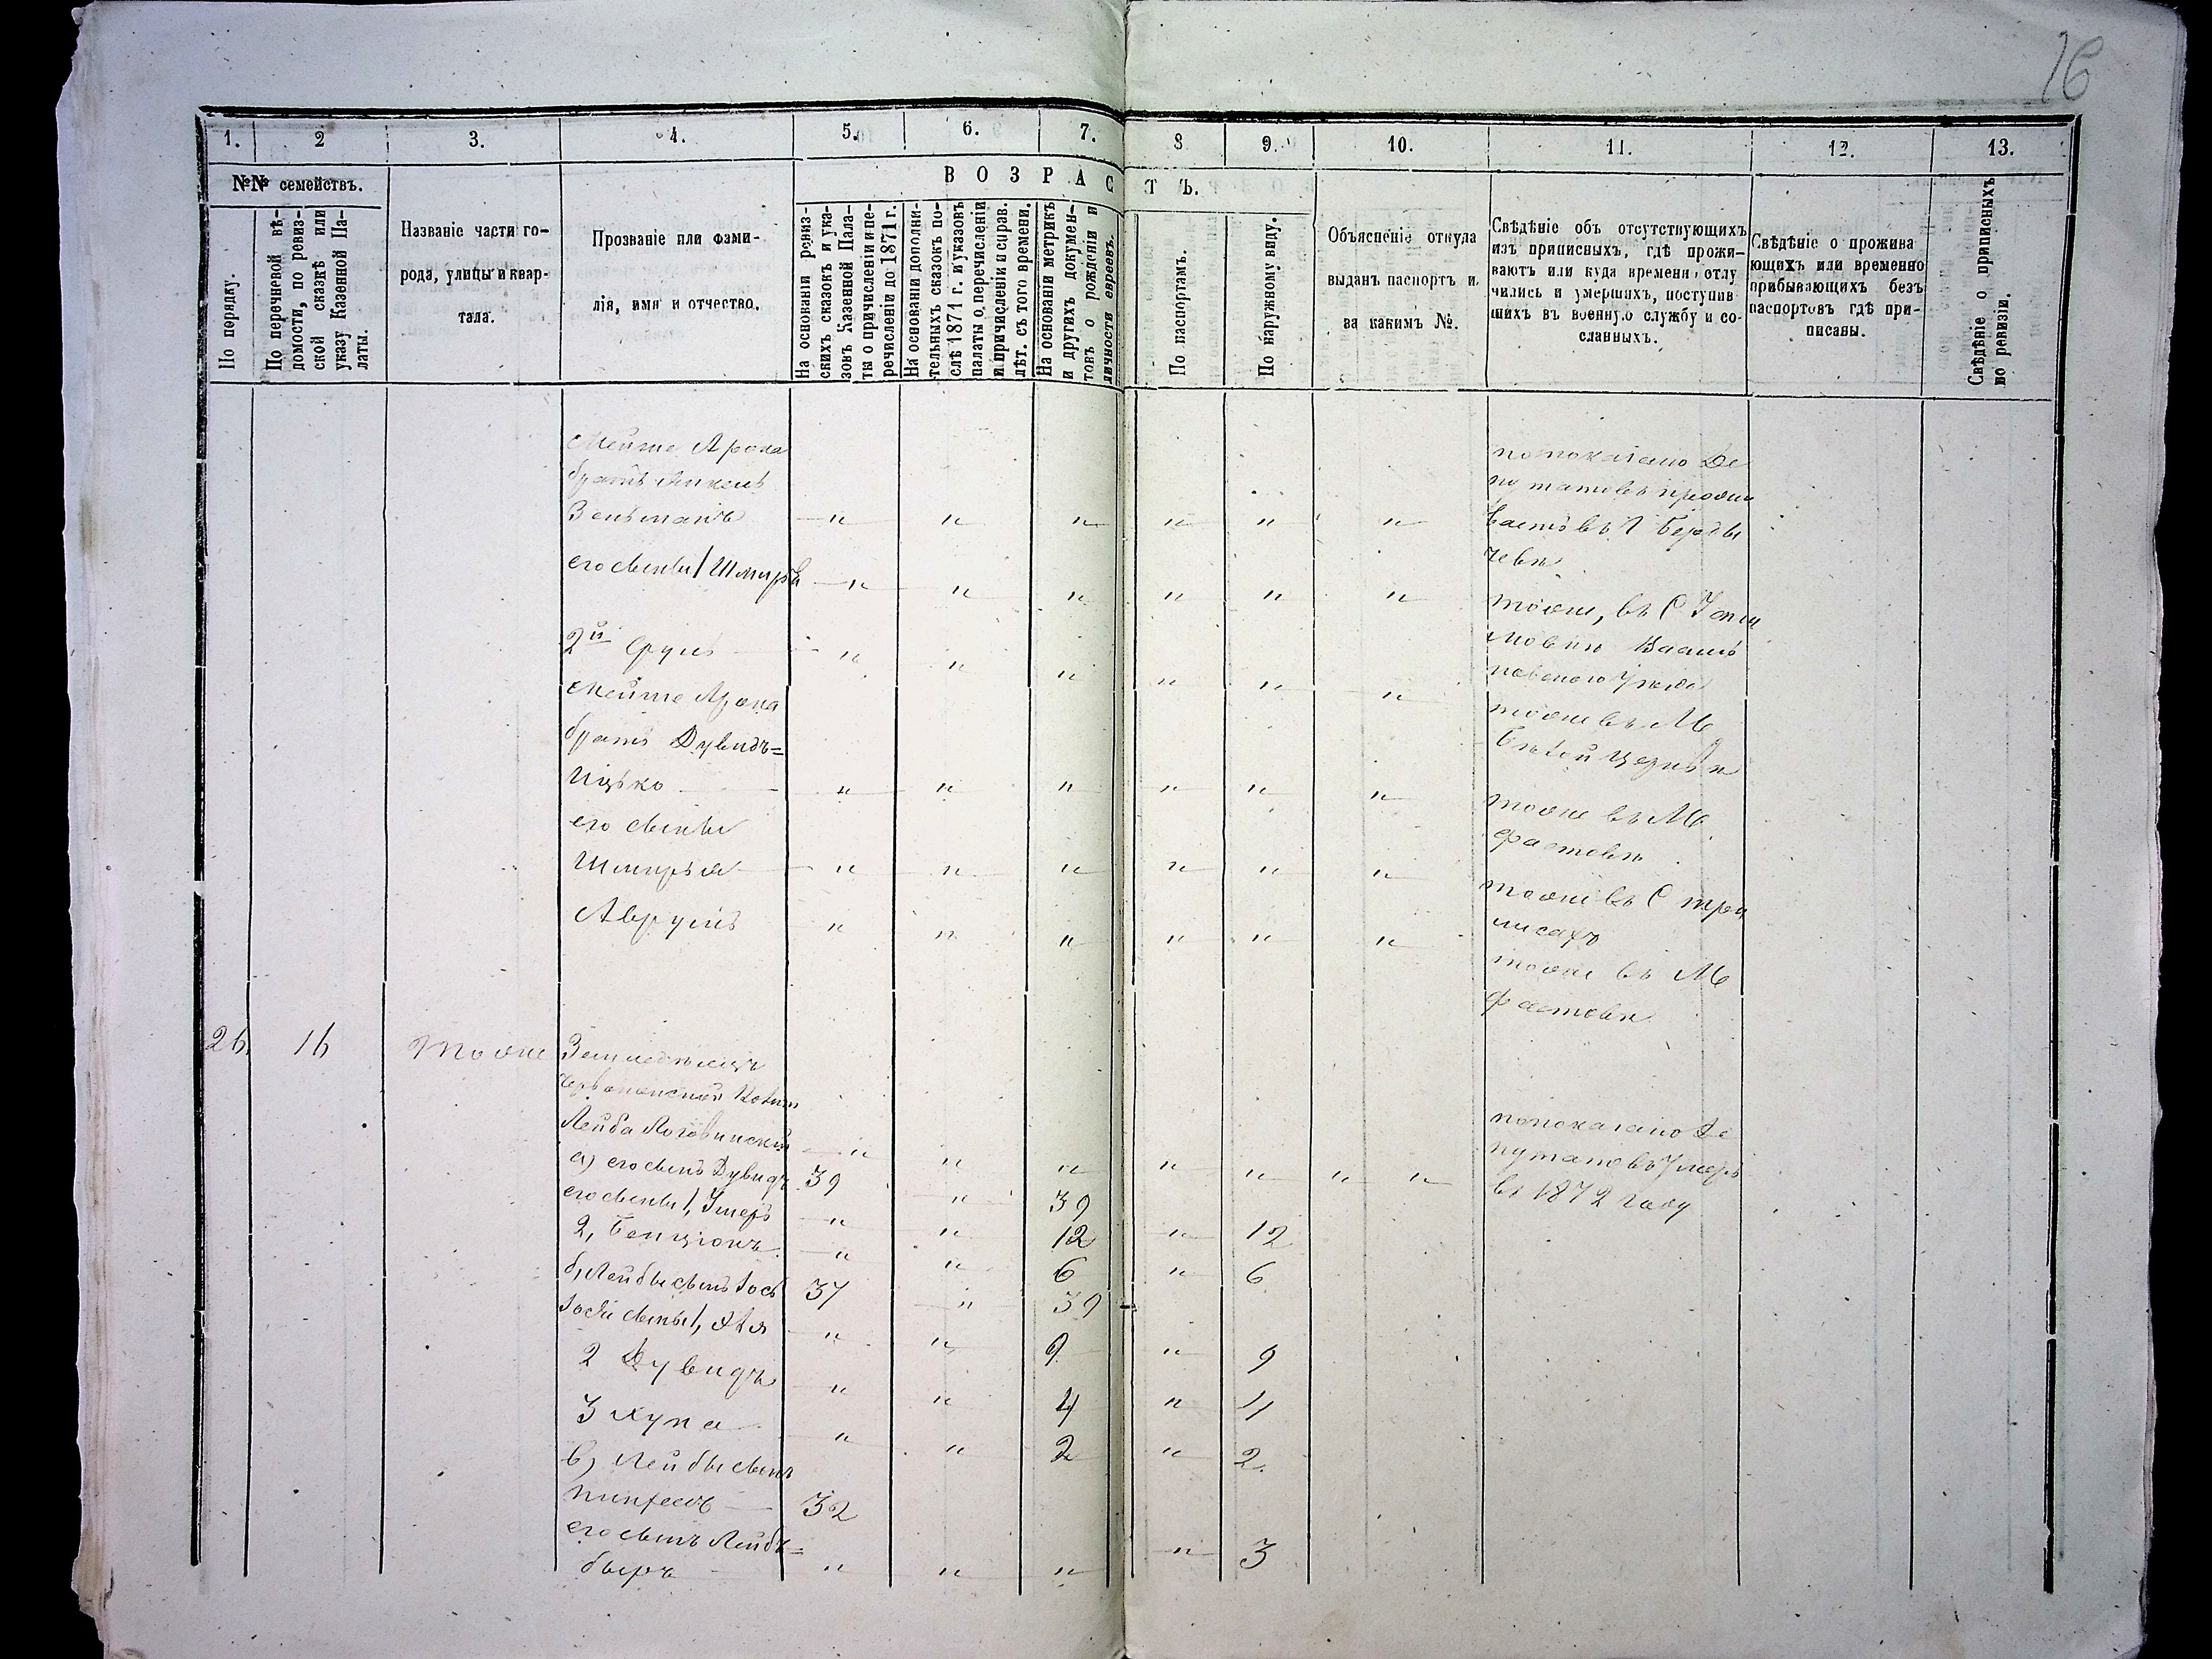 16
1.
2
3.
4.
5.
6.
7.
8
9.
10.
11.
12.
13.
№№ семействъ.
ВОЗРАСТЪ.
По порядку.
По перечневой вѣ-
домости, по ревиз-
ской сказкѣ или
указу Казенной Па-
латы.
Названіе части го-
рода, улицы и квар-
тала.
Прозваніе или фами-
лія, имя и отчество.
На основаніи ревиз-
скихъ сказокъ и ука-
зовъ Казенной Пала-
ты о причисленіи и пе-
речисленіи до 1871 г.
На основаніи дополни-
тельныхъ сказокъ по-
слѣ 1871 г. и указовъ
палаты о перечисленіи
и причисленіи и справ.
лѣт. съ того времени.
На основаніи метрикъ
и другихъ докумен-
товъ о рожденіи и
личности евреевъ.
По паспортамъ.
По наружному виду.
Объясненіе откуда
выданъ паспортъ и
за какимъ №.
Свѣдѣніе объ отсутствующихъ
изъ приписныхъ, гдѣ прожи-
ваютъ или куда времени отлу
чились и умершихъ, поступив
шихъ въ военную службу и со-
сланныхъ.
Свѣдѣніе о прожива
ющихъ или временно
прибывающихъ безъ
паспортовъ гдѣ при-
писаны.
Свѣдѣніе о приписныхъ
по ревизіи.
Мейше Арона
братъ
Зельманъ " " " " " "
по показанію Де
путатовъ прожи
ваетъ въ Г Берды
чевѣ
его сыновья 1 Шмиръ " " " " " "
тоже, въ С
Василь
ковскаго уѣзда
2й Сруль " " " " " "
тоже въ М
Бѣлой церкви
Мейше Арона
братъ Дувидъ=
Ицько " " " " " "
тоже въ М
Фастовѣ
его сыновья
Шмирья " " " " " "
тоже въ С
Аврумъ " " " " " "
тоже въ М
Фастовѣ
26. 16 Тоже Земледѣлецъ
Червоненской Колон
Лейба " " " " " " "
по показанію Де
путатовъ Умеръ
въ 1872 году
а) его сынъ Дувидъ 39 " 39
его сыновья 1, " " 12 " 12
2, Бенціонъ " " 6 " 6
б, Лейбы сынъ Іось 37 " 39
Іося сыновья 1, " " 9 " 9
2 Дувидъ " " 4 " 4
3 " " 2 " 2.
в) Лейбы сынъ
Пинхесъ 32
его сынъ Лейбъ=
беръ " " " " 3